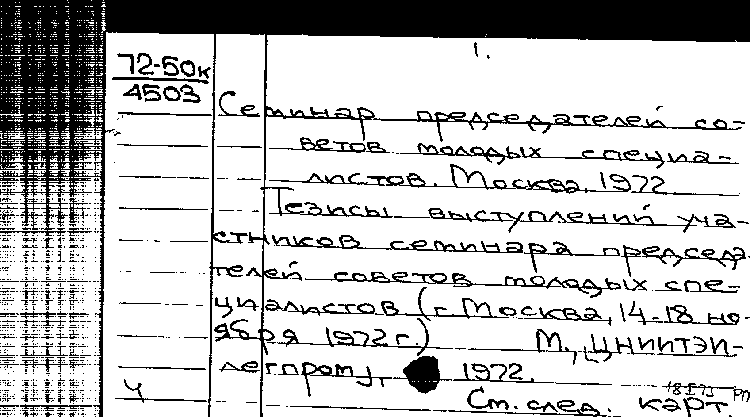 1.
72-50к
4503
Семинар председателей со-
ветов молодых специа-
листов. Москва, 1972
Тезисы выступлений уча-
стников семинара председа-
телей советов молодых спе-
циалистов (г. Москва, 14-18 но-
ября 1972 г.) М., ЦНИИТЭИ-
легпром, 1972.
Ч
См. след. карт.